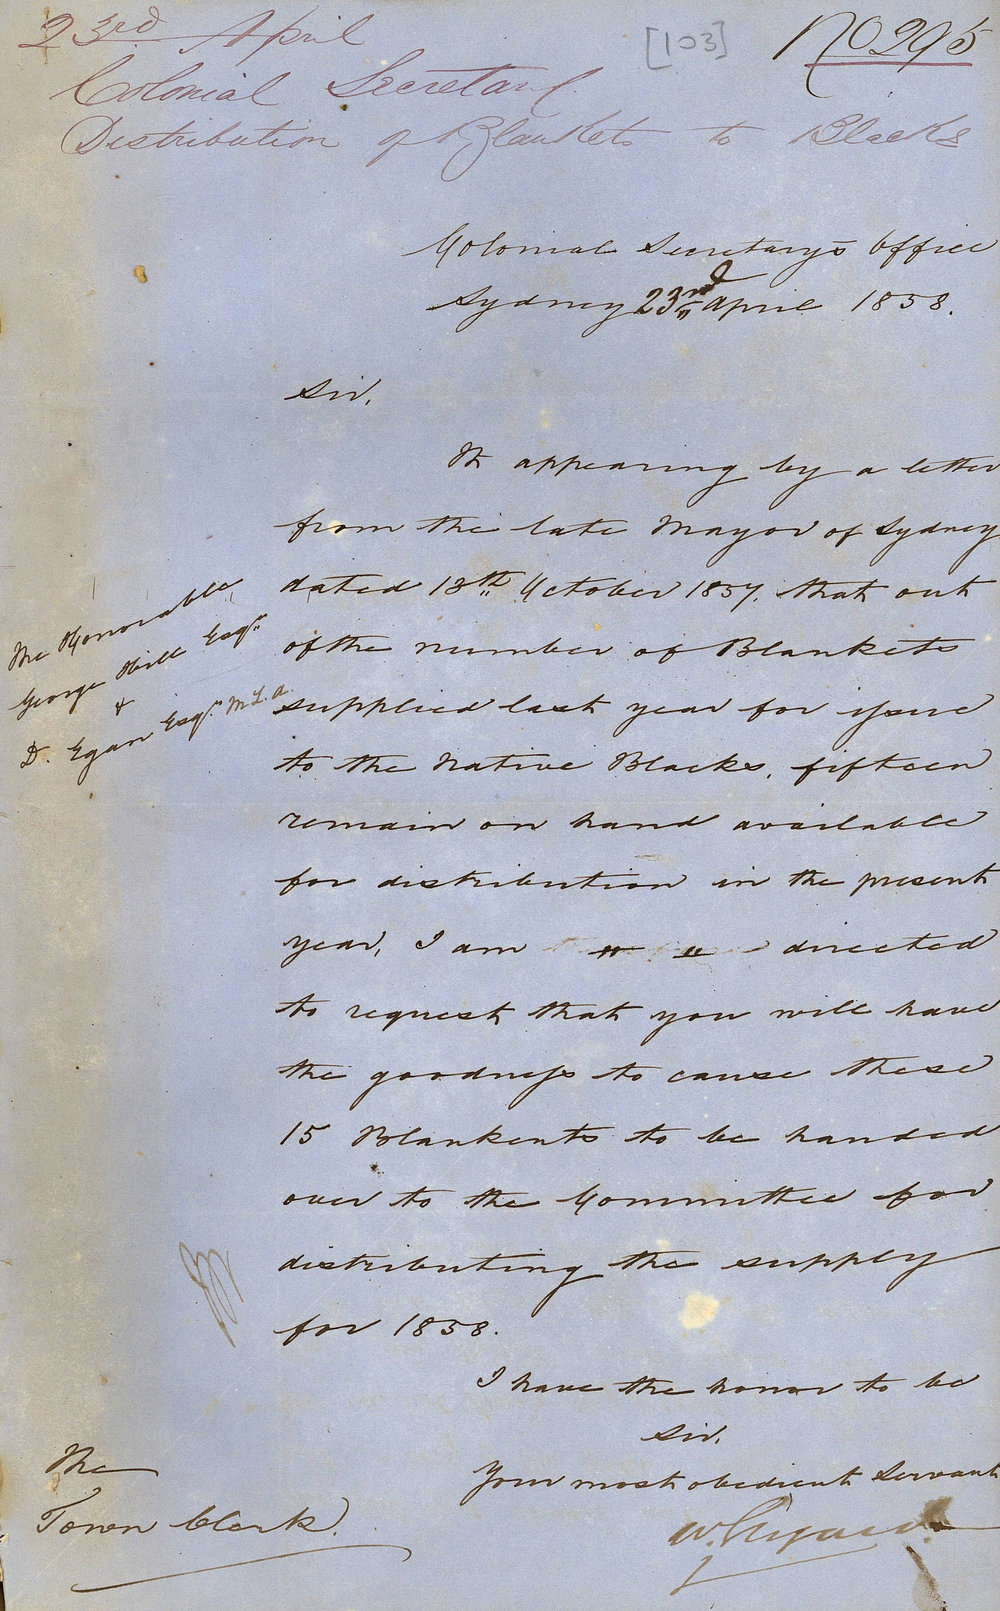 23rd April
[103]
No 295
Colonial Secretary
Distribution of Blankets to Blacks
Colonial Secretary's Office
Sydney 23rd April 1858.
Sir,
It appearing by a letter
from the late Mayor of Sydney
dated 13th October 1857, that out
of the number of Blankets
supplied last year for issue
to the Native Blacks, fifteen
remain on hand available
for distribution in the present
year, I am " " directed
to request that you will have
the goodness to cause these
15 Blankents to be handed
over to the Committee for
distributing the supply
for 1858.
The Honorable
George Hill Esqr.
&
D. Egan Esqr. M.L.A.
I have the honor to be
Sir,
Your most obedient Servant
W.
The
Town Clerk.